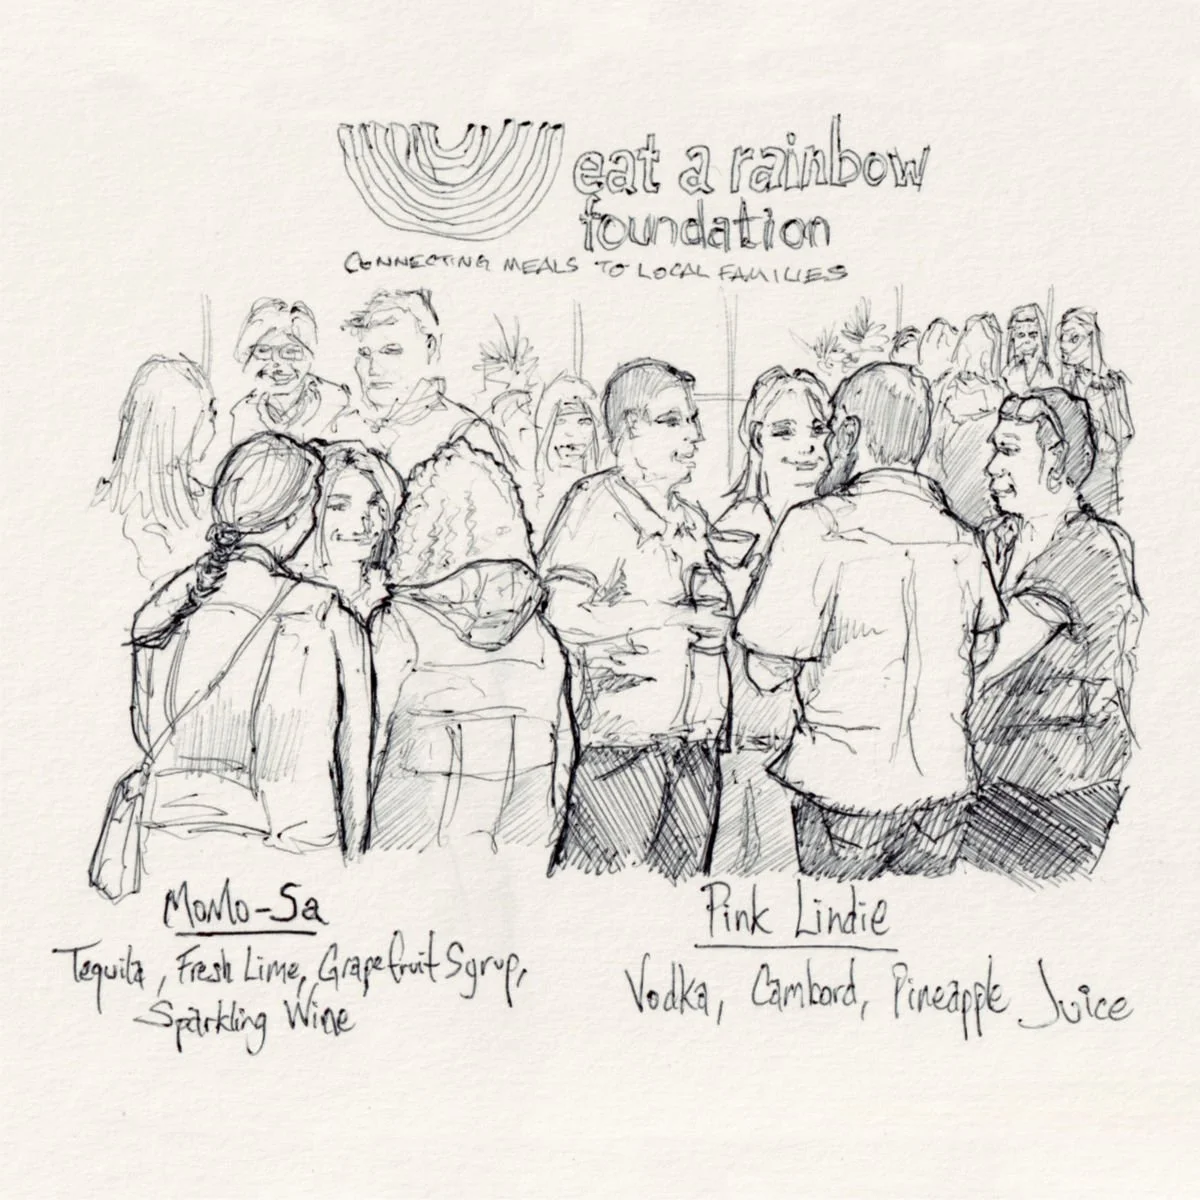 eat a rainbow
foundation
CONNECTING MEALS TO LOCAL FAMILIES
MoMo-Sa
Tequila, Fresh Lime, Grapefruit Syrup,
Sparkling Wine
Pink Lindie
Vodka, Cambord, Pineapple Juice